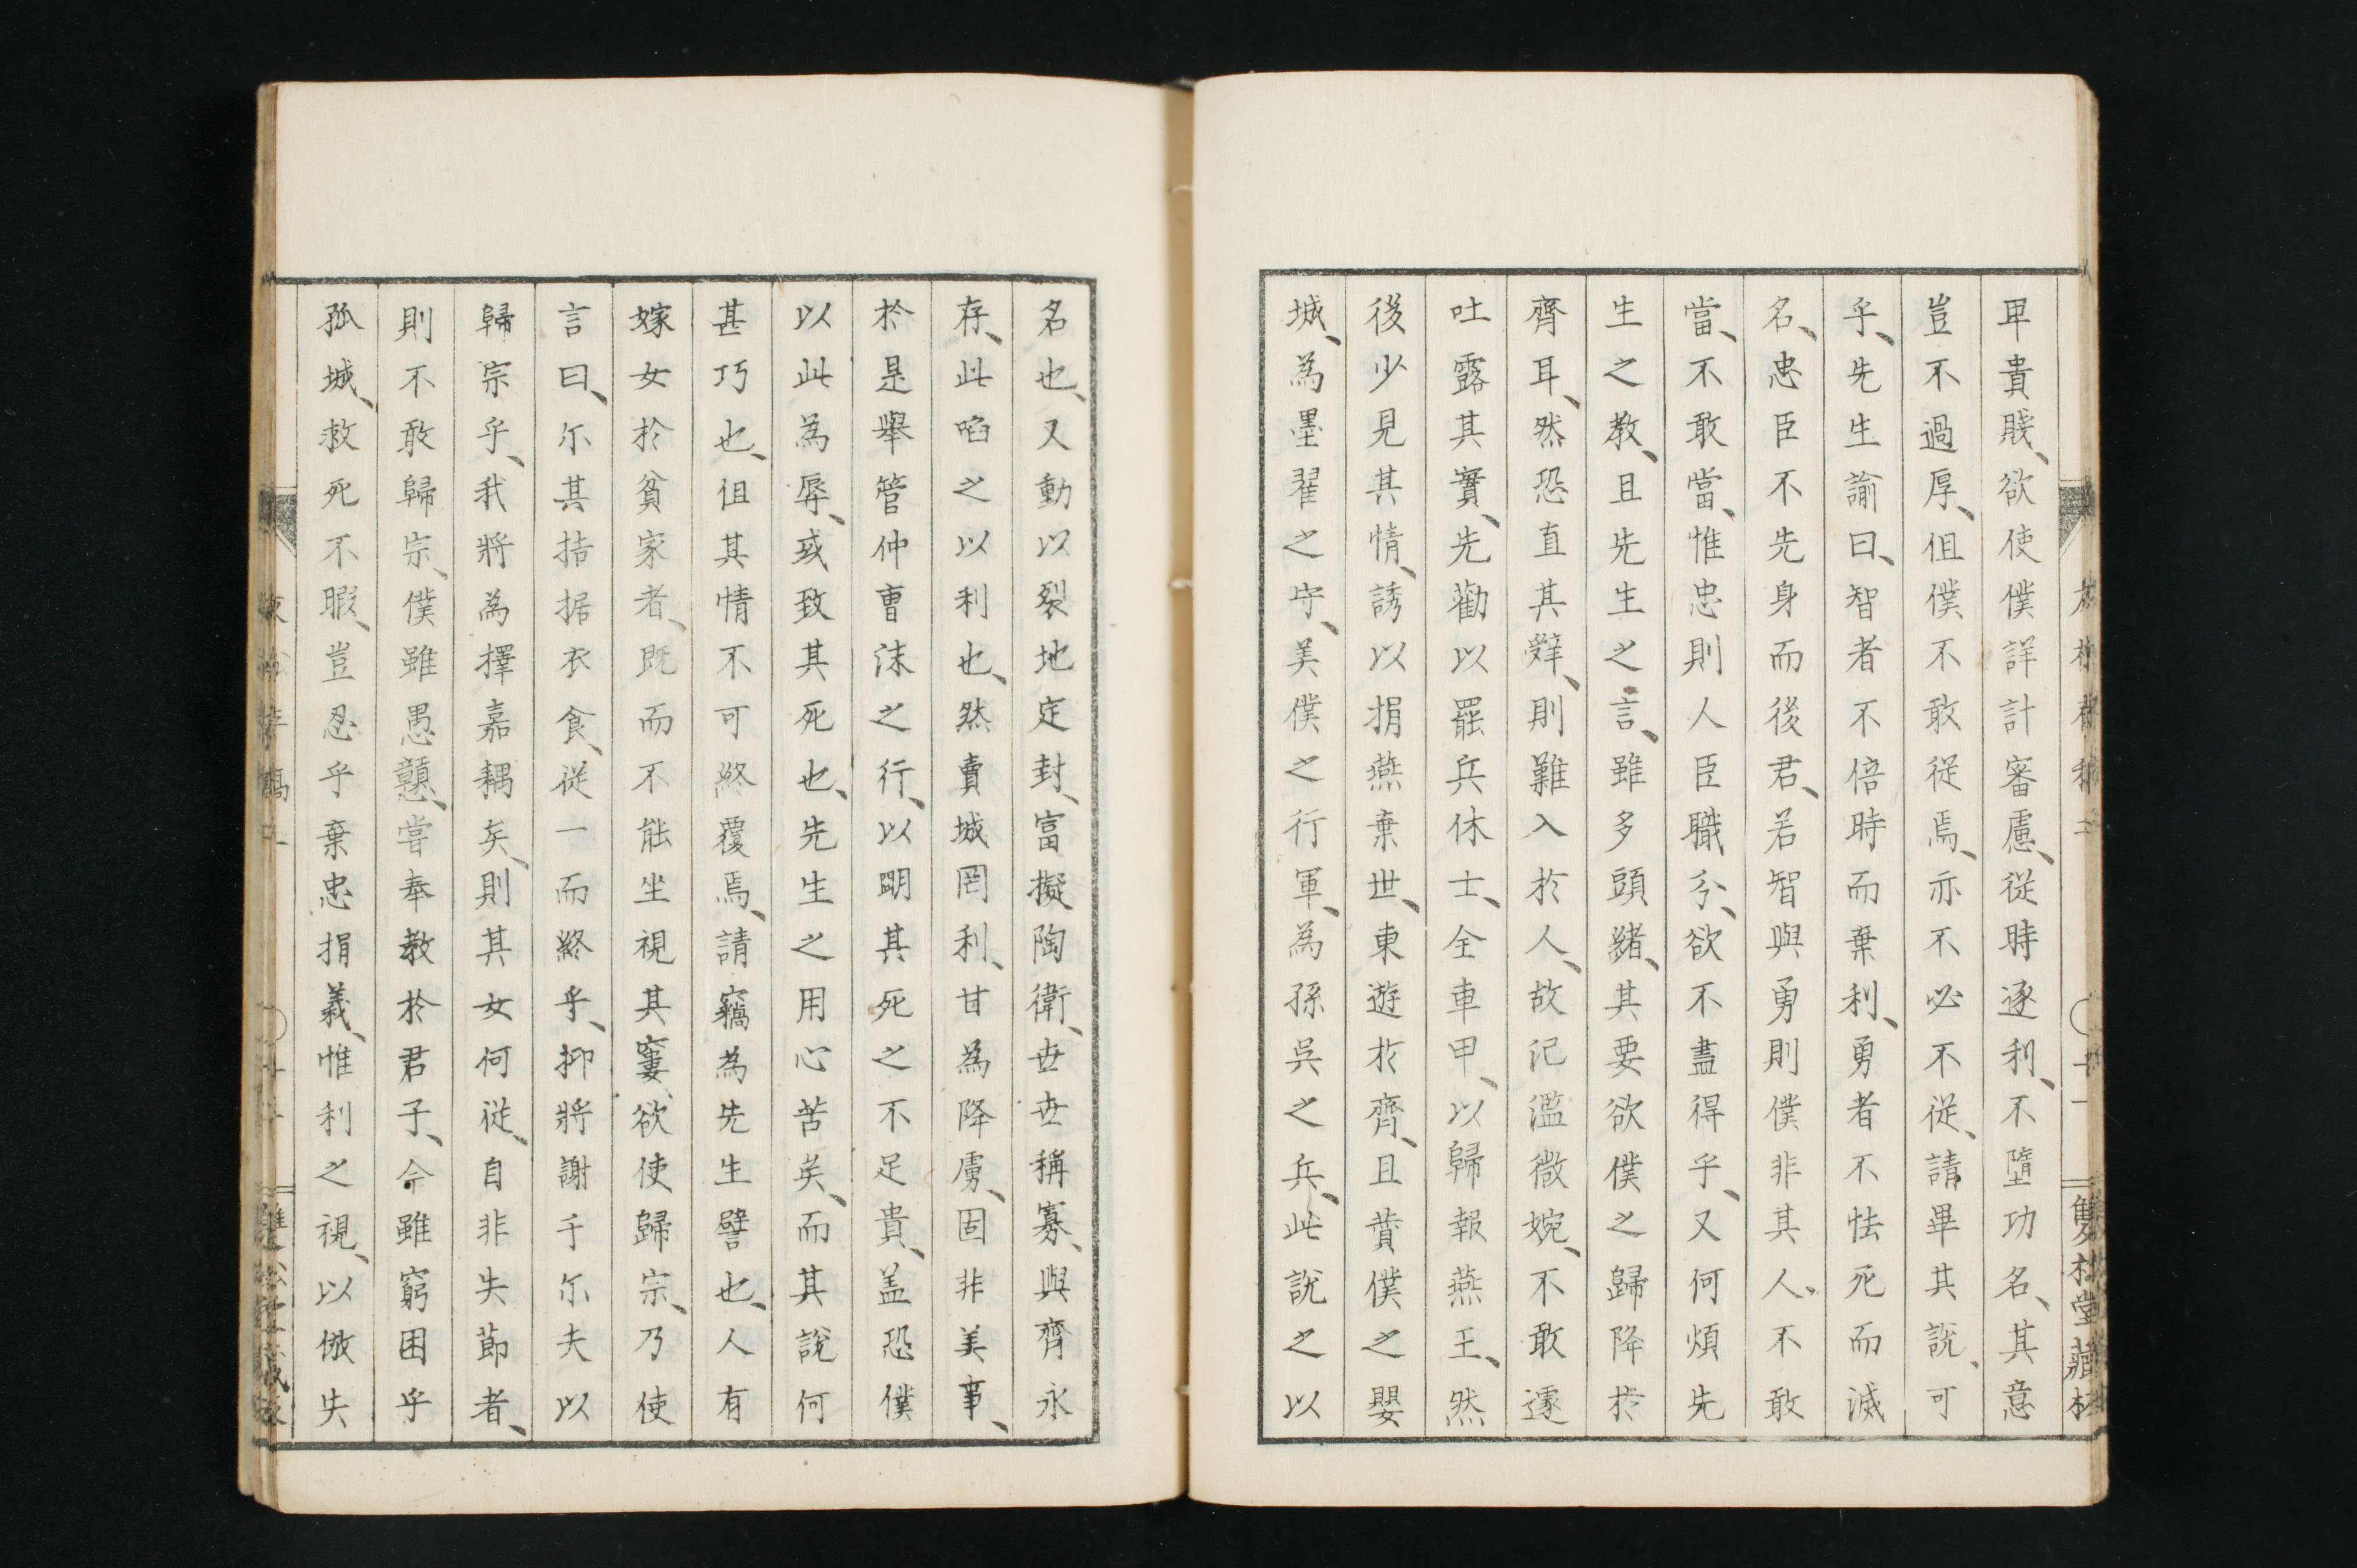 卑貴賤、欲使僕詳計審慮、従時逐利、不墮功名、其意
豈不過厚、但僕不敢従焉、亦不必不従、請畢其説、可
乎、先生諭曰、智者不倍時而棄利、勇者不怯死而滅
名、忠臣不先身而後君、若智與勇則僕非其人、不敢
當、不敢當、惟忠則人臣職分、欲不盡得乎、又何煩先
生之教、且先生之言、雖多頭緒、其要欲僕之歸降於
齊耳、然恐直其辤、則難入於人、故汜濫微婉、不敢遽
吐露其實、先勸以罷兵休士、全車甲、以歸報燕王、然
後少見其情、誘以捐燕棄世、東遊於齊、且贊僕之嬰
城、為墨翟之守、美僕之行軍、為孫吳之兵、此說之以
名也、又動以裂地定封、富擬陶衛、世世稱寡、與齊永
存、此啗之以利也、然賣城罔利、甘為降虜、固非美事、
於是舉管仲曹沫之行、以明其死之不足貴、盖恐僕
以此為辱、或致其死也、先生之用心苦矣、而其說何
甚巧也、但其情不可終覆焉、請竊為先生譬也、人有
嫁女於貧家者、既而不能坐視其窶、欲使歸宗、乃使
言曰、尓其拮据衣食、従一而終乎、抑將謝于尓夫以
歸宗乎、我將為擇嘉耦矣、則其女何従、自非失節者、
則不敢歸宗、僕雖愚戇、嘗奉教於君子、今雖窮困乎
孤城、救死不暇、豈忍乎棄忠捐義、惟利之視、以倣失
雙松堂藏板